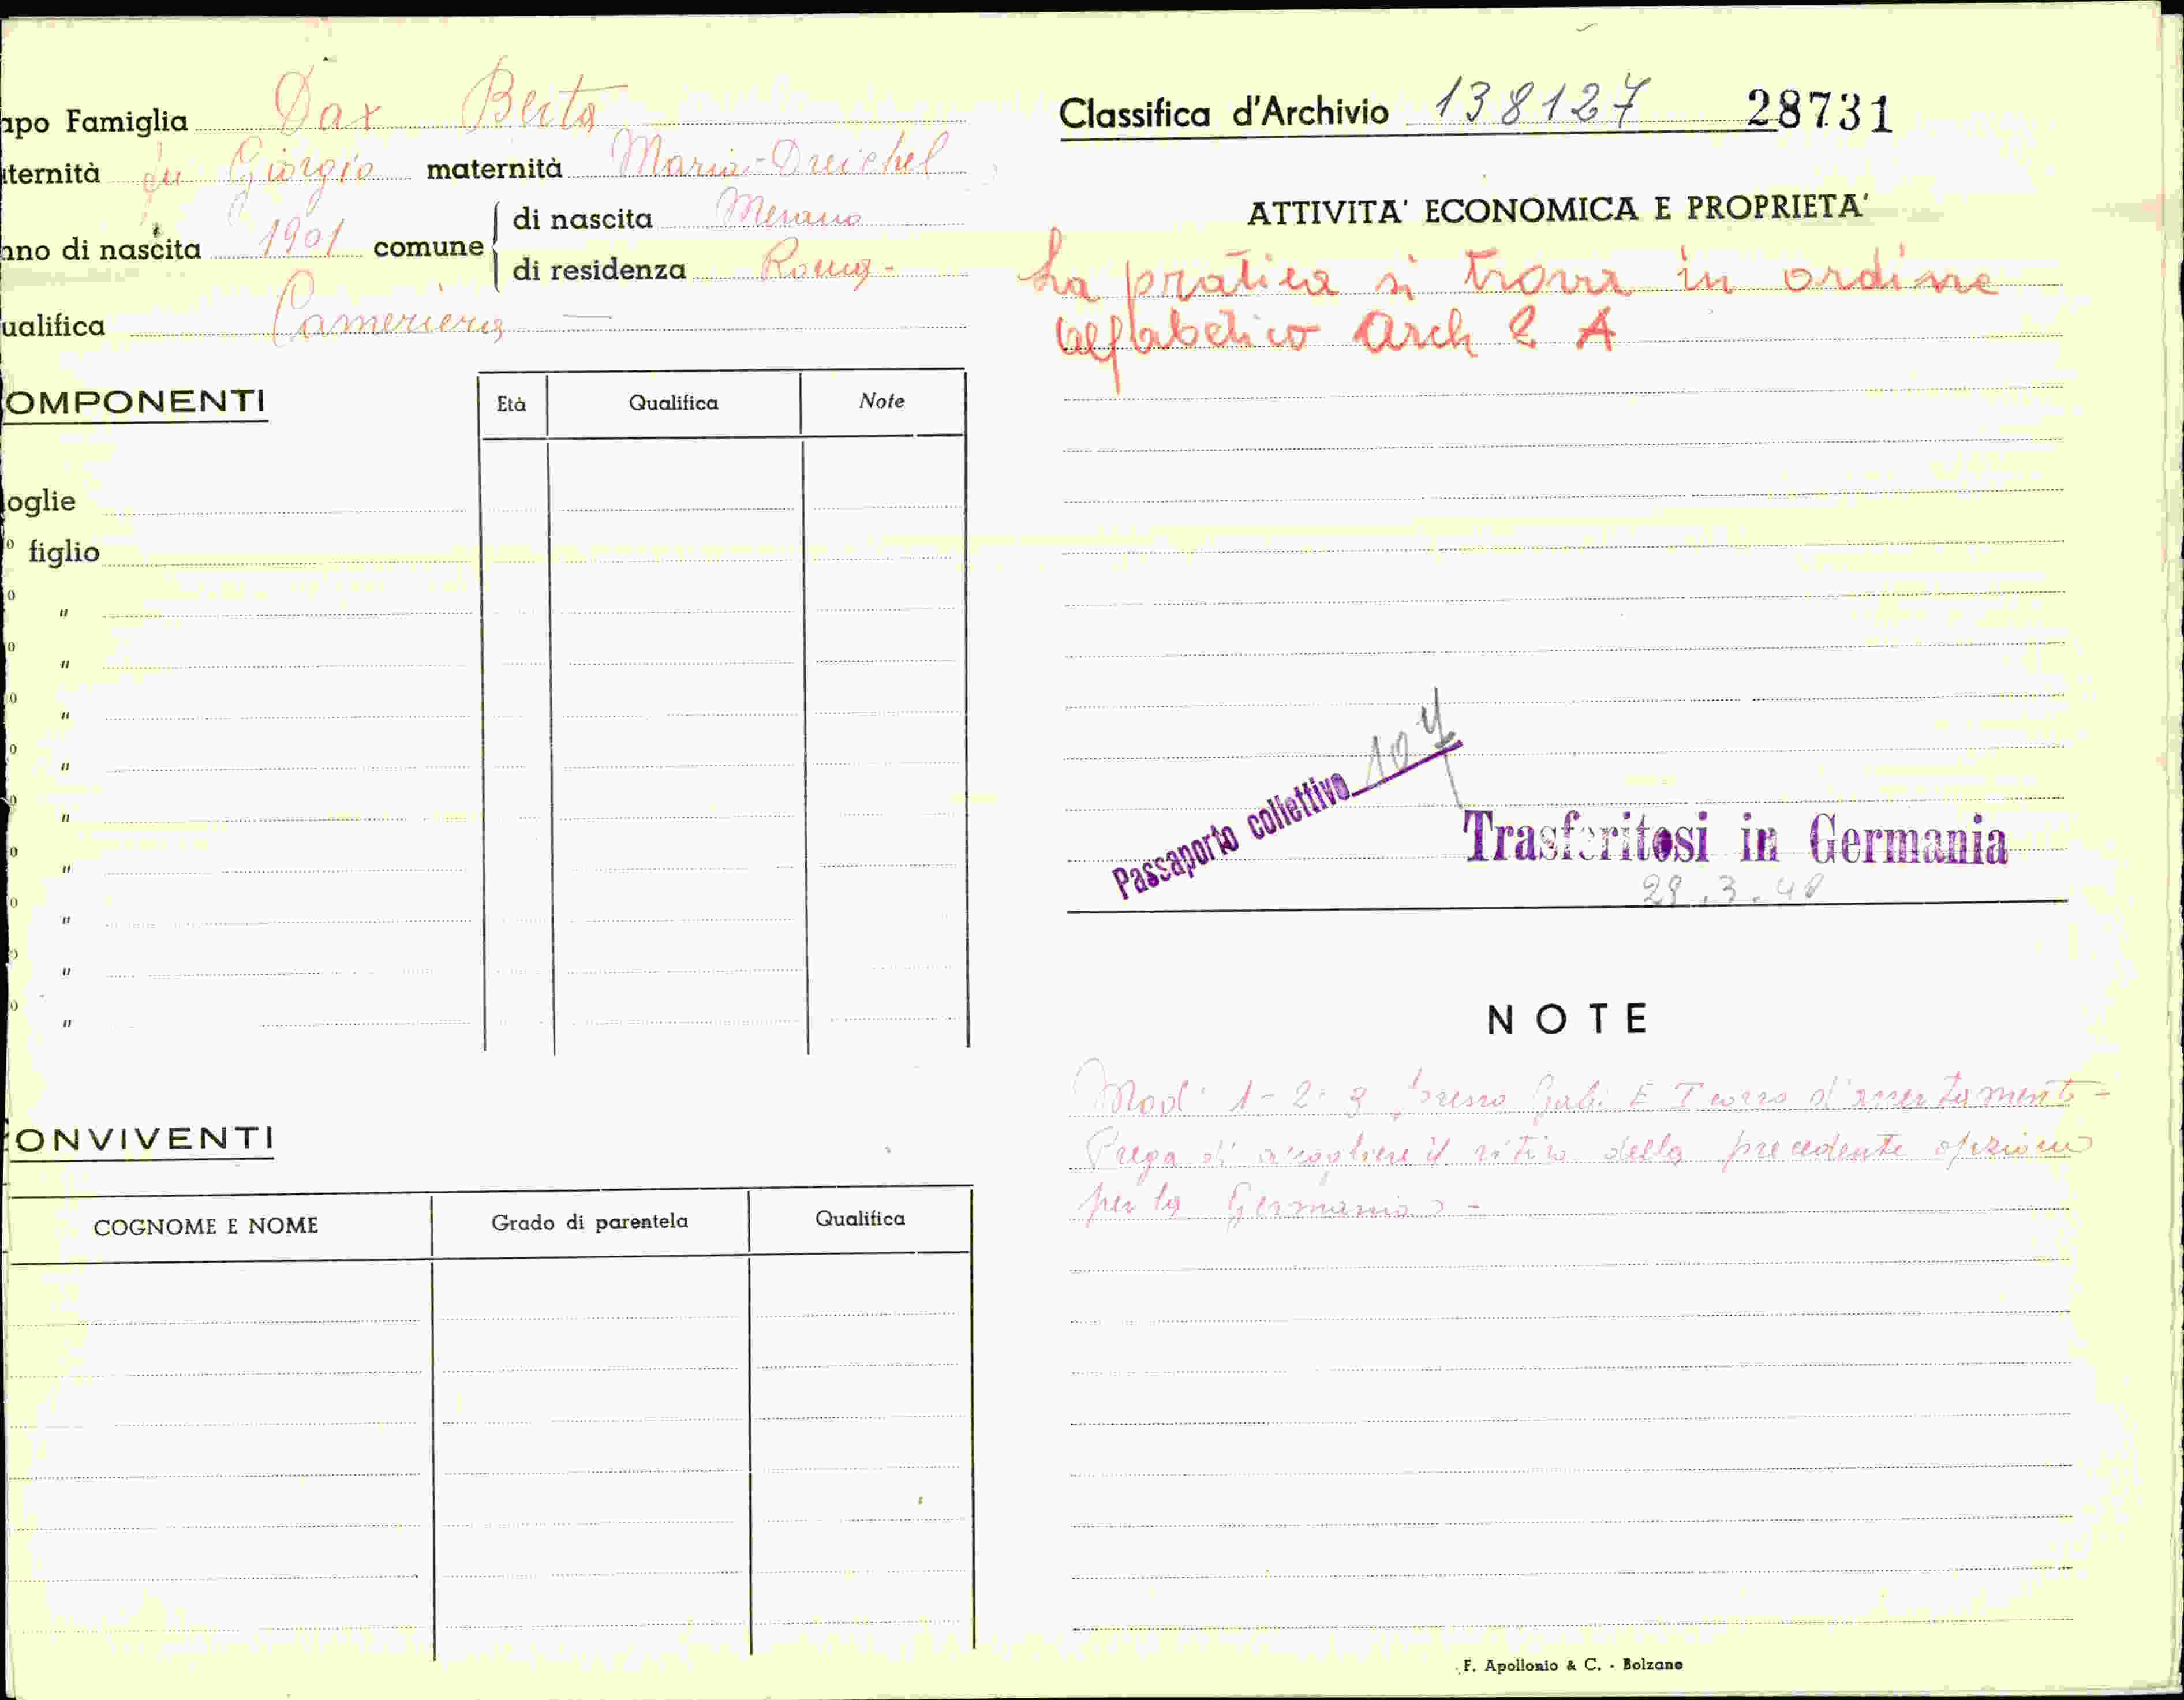 apo Famiglia Dax Berta
ternità fu Giorgio maternità Maria Dreichel
nno di nascita 1901 comune di nascita Merano
di residenza Roma -
ualifica Cameriera —
OMPONENTI Età Qualifica Note
oglie
o figlio
o "
o "
o "
o "
o "
o "
o "
o "
o "
ONVIVENTI
COGNOME E NOME Grado di parentela Qualifica
Classifica d'Archivio 138127 28731
ATTIVITA' ECONOMICA E PROPRIETA'
La pratica si trova in ordine
alfabetico Arch 2 A
Passaporto collettivo 104
Trasferitosi in Germania
29.3.40
NOTE
Mod. 1-2-3 presso E -
Prega di accogliere il ritiro della precedente opzione
per la Germania -
F. Apollonio & C. - Bolzano